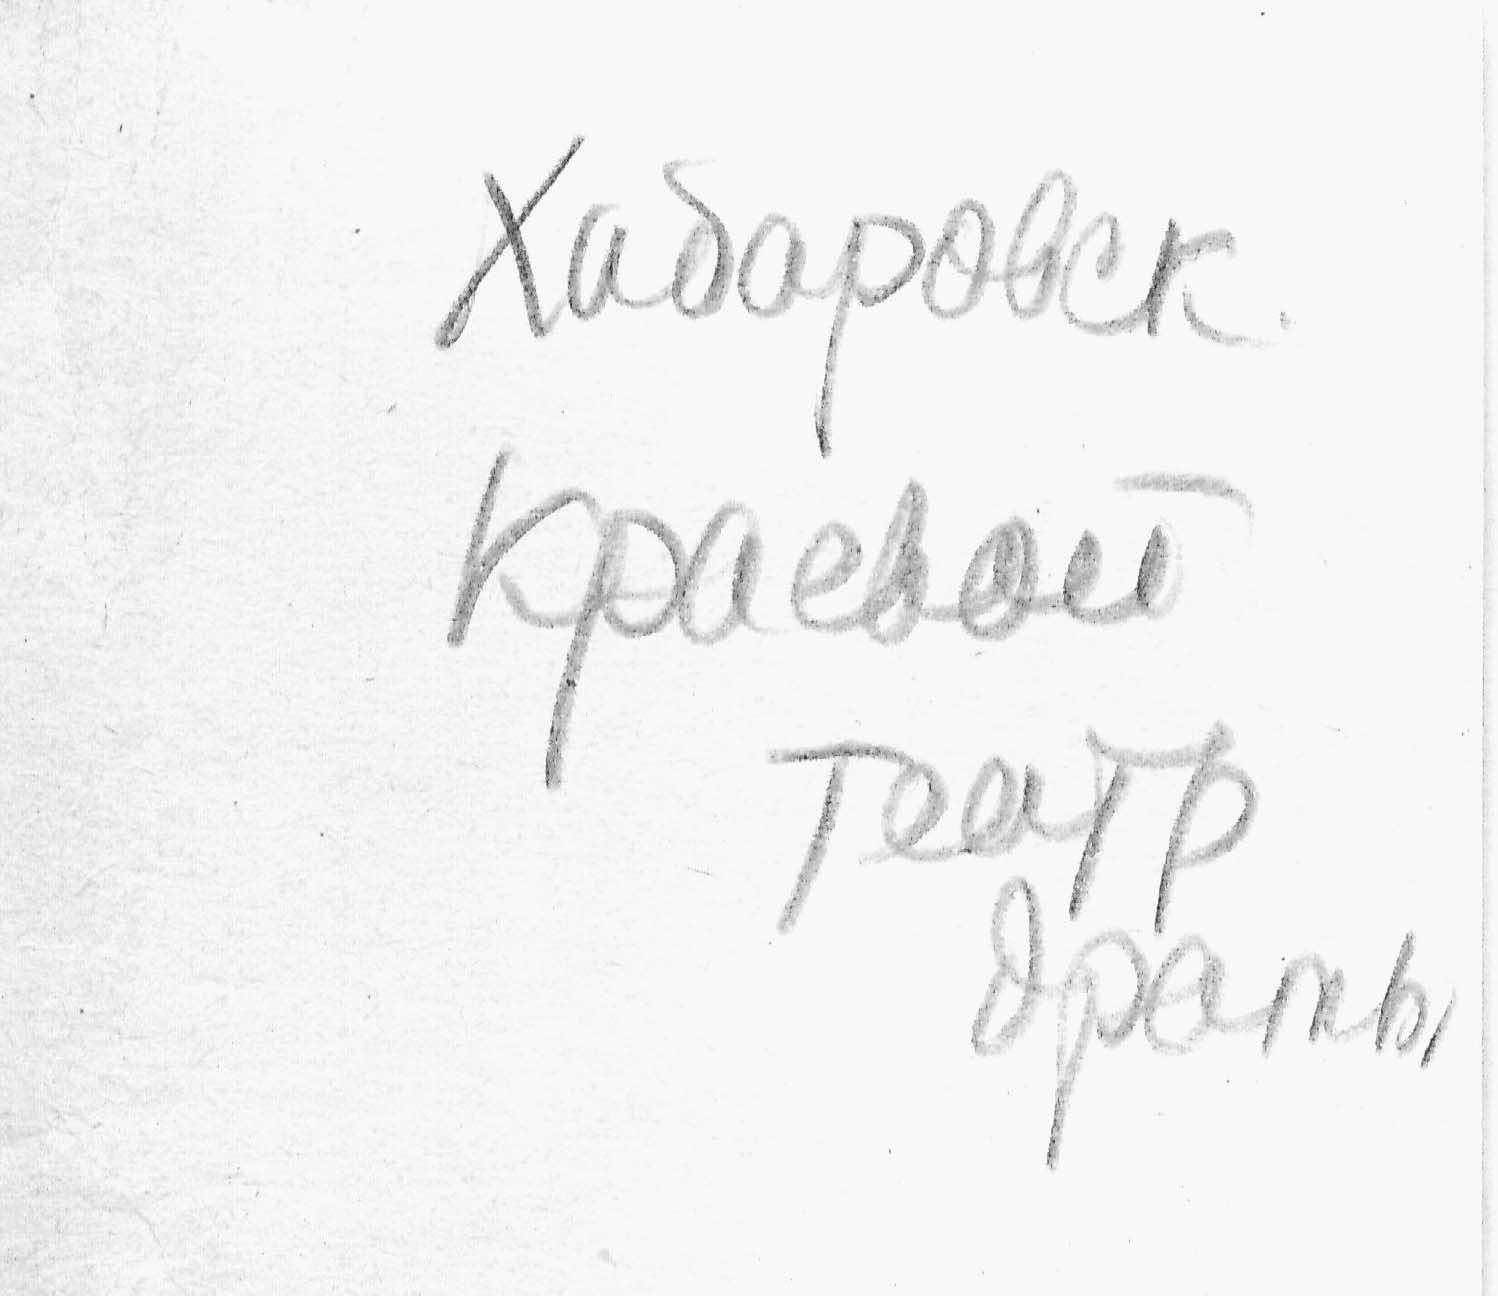 Хабаровск.
Краевой
театр
драмы